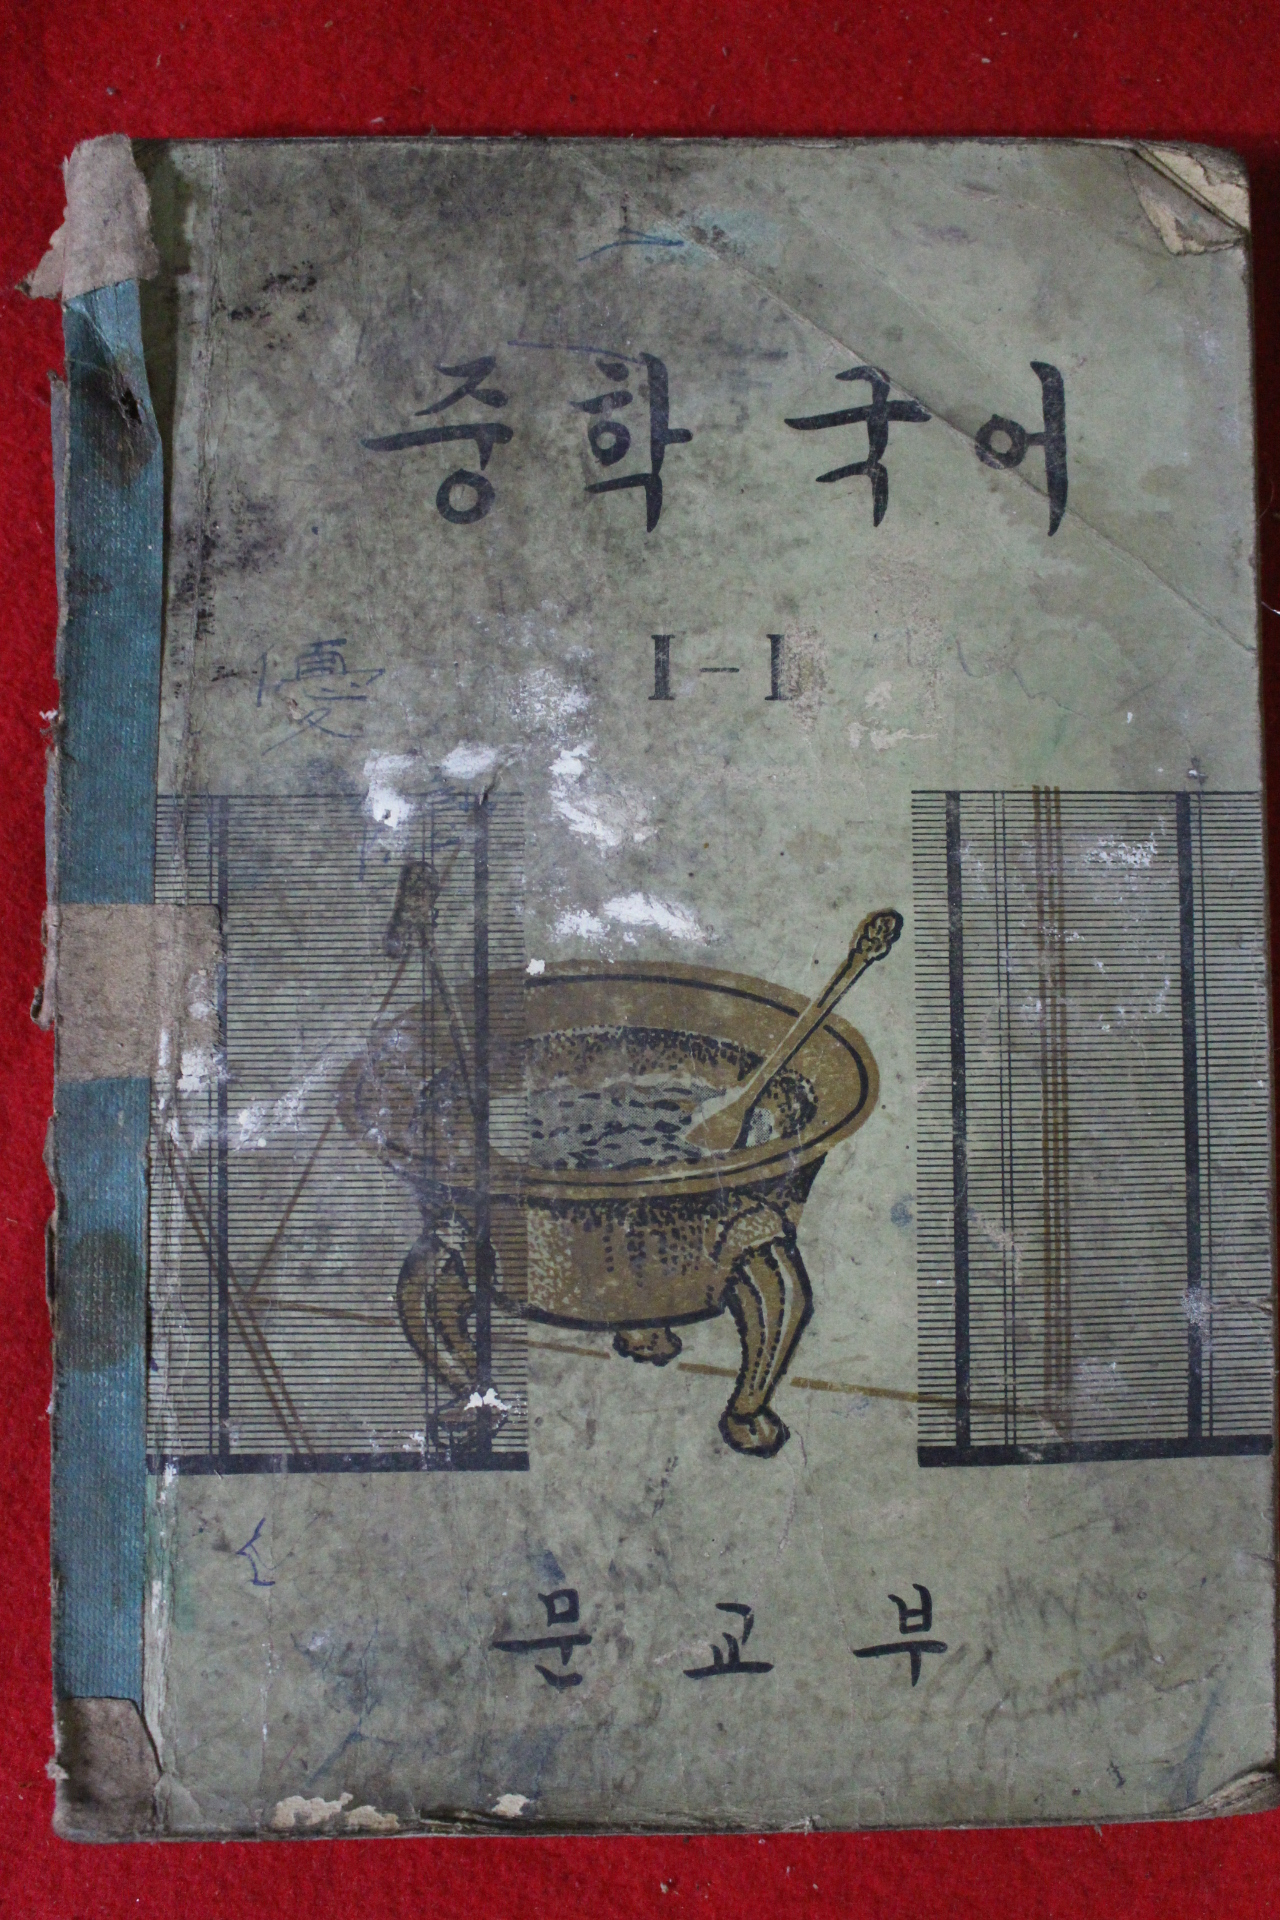 중학 국어
I-1
優
문교부